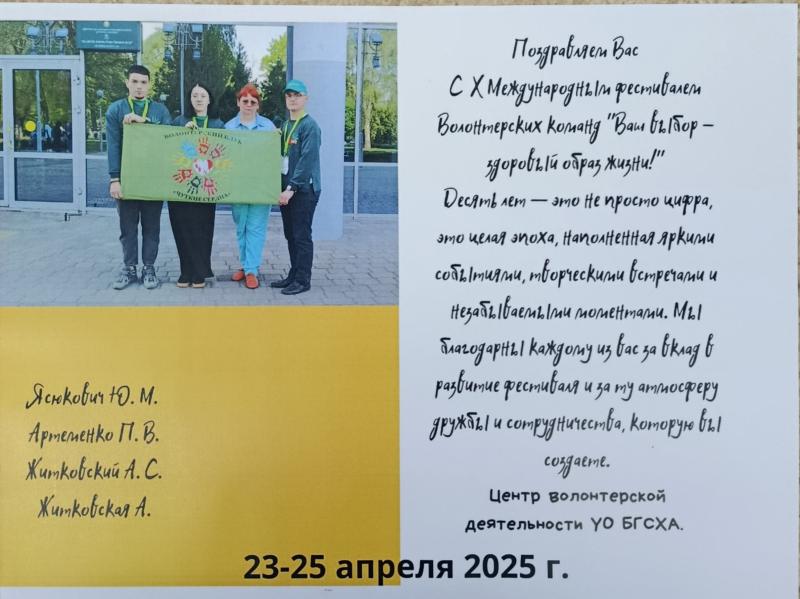 ВОЛОНТЕРСКИЙ КЛУБ
"ЧУТКИЕ СЕРДЦА"
Ясюкович Ю. М.
Артеменко П. В.
Житковский А. С.
Житковская А.
Поздравляем Вас
С X Международным фестивалем
Волонтерских команд "Ваш выбор –
здоровый образ жизни!"
Десять лет — это не просто цифра,
это целая эпоха, наполненная яркими
событиями, творческими встречами и
незабываемыми моментами. Мы
благодарны каждому из вас за вклад в
развитие фестиваля и за ту атмосферу
дружбы и сотрудничества, которую вы
создаете.
Центр волонтерской
деятельности УО БГСХА.
23-25 апреля 2025 г.